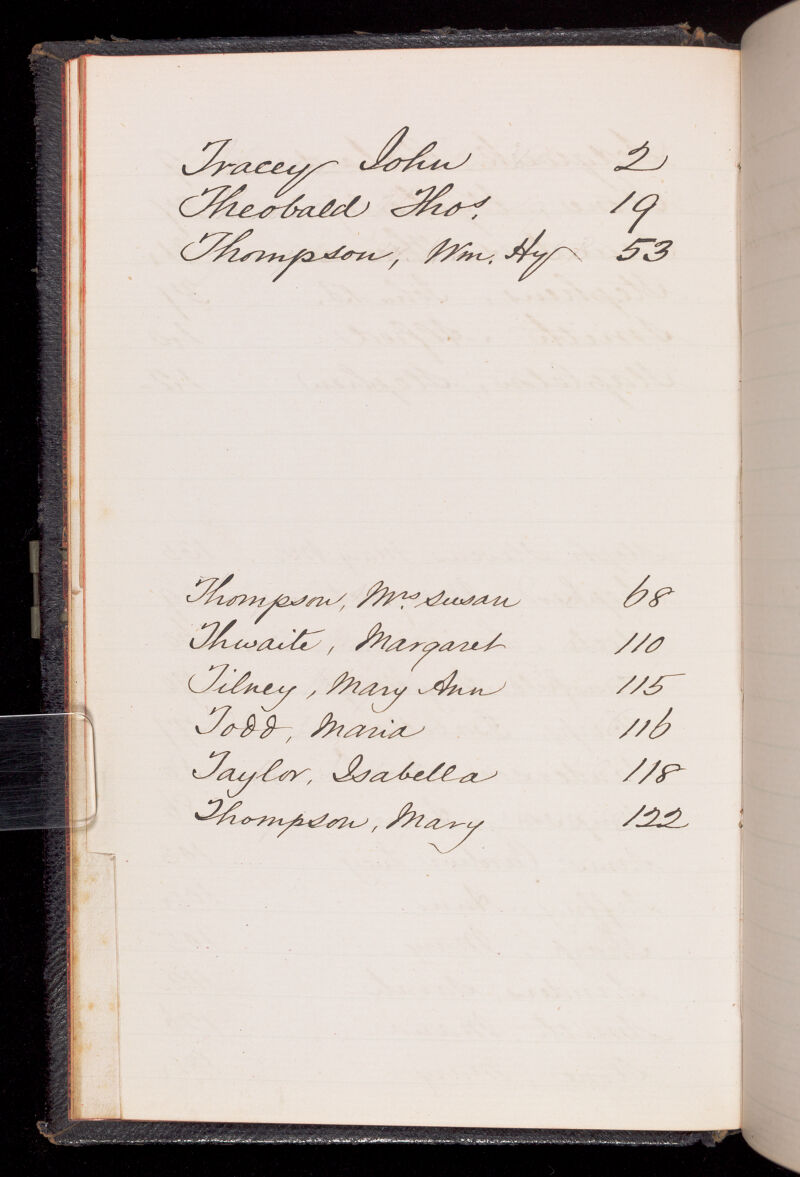 Tracey John 2
Theobald Thos. 19
Thompson, Wm. Hy 53
Thompson, Mrs Susan 68
Thwaite, Margaret 110
Tilney, Mary Ann 115
Todd, Maria 116
Taylor, Isabella 118
Thompson, Mary 122